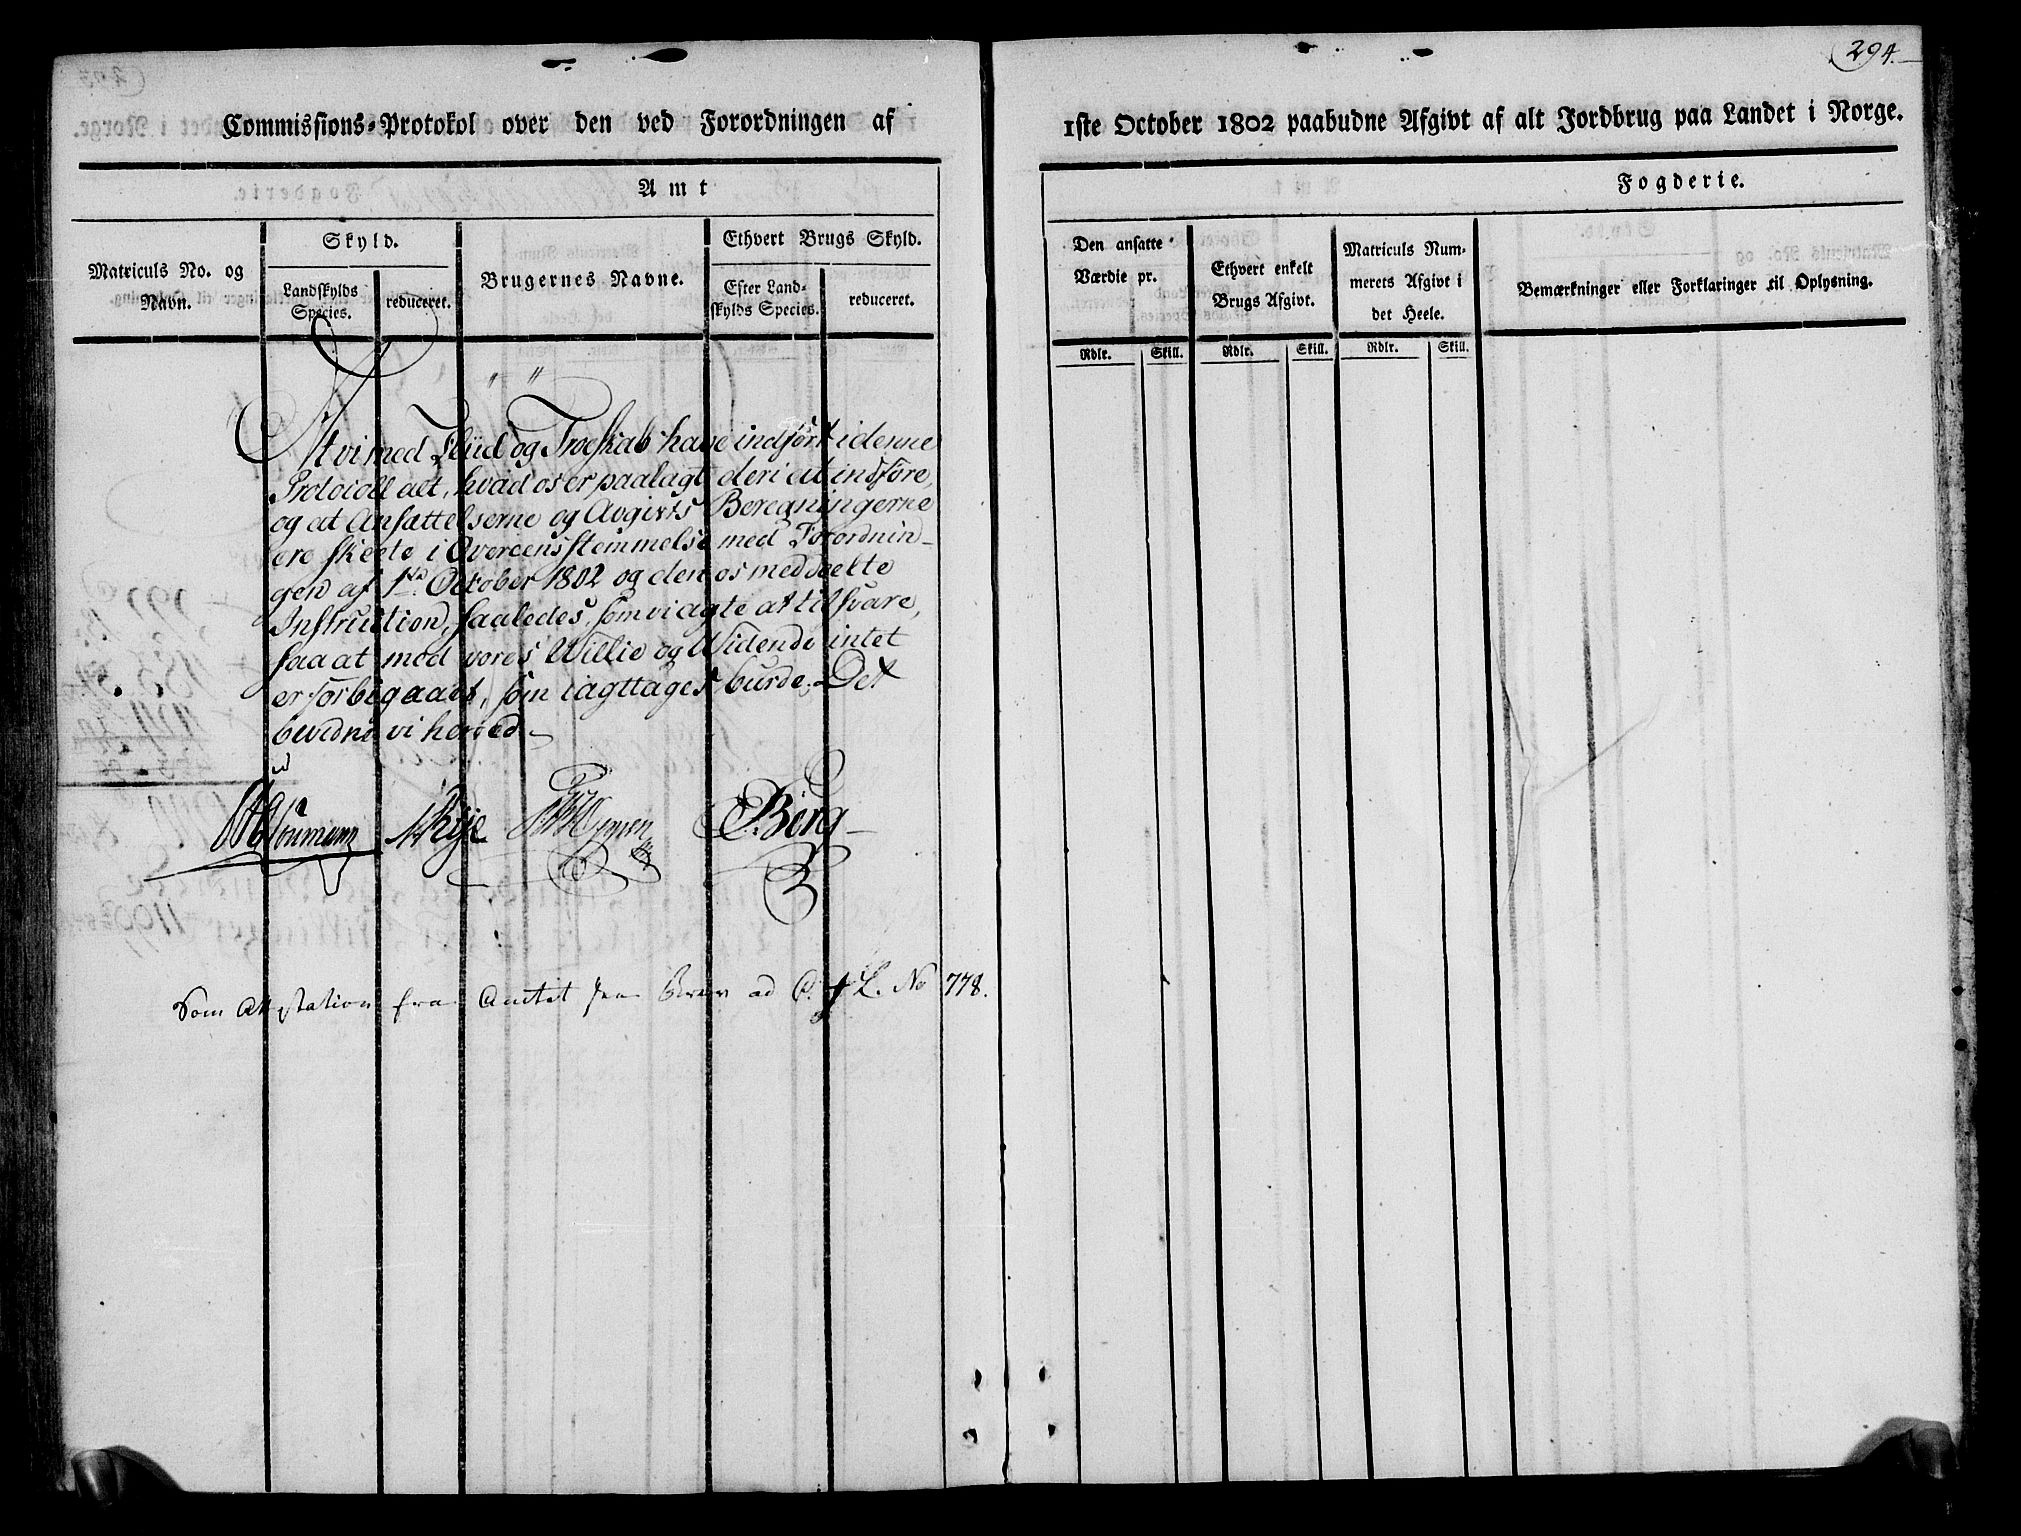 294.
Commissions-Protokol over den ved Forordningen af 1ste October 1802 paabudne Afgivt af alt Jordbrug paa Landet i Norge.
Amt
Fogderie.
Matriculs No. og Navn.
Skyld.
Landskylds Species.
reduceret.
Brugernes Navne.
Ethvert Brugs Skyld.
Efter Landskylds Species.
reduceret.
Den ansatte Værdie pr.
Ethvert enkelt Brugs Afgivt.
Matriculs Nummerets Afgivt i det Heele.
Bemærkninger eller Forklaringer til Oplysning.
Rdlr. Skill. Rdlr. Skill. Rdlr. Skill.
At vi med Fliid og Troeskab have indført i denne
Protocoll alt, hvad os er paalagt deri at indføre,
og at Ansættelserne og Avgivts Beregningerne
ere skeete i Overeensstemmelse med Forordnin-
gen af 1ste October 1802 og den os meddeelte
Instruction, saaledes, som vi agte at tilsvare,
saa at med vores Willie og Widende intet
er forbigaaet, som iagttages burde. Det
bevidne vi herved.
Berg
Som Attestation fra Amtet No 778.